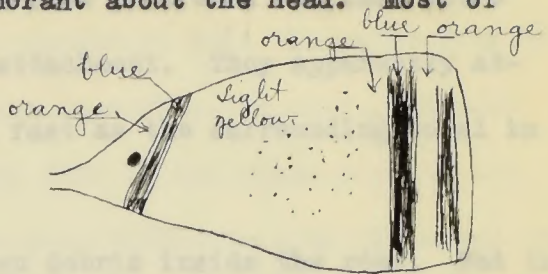 morant about the head. Most of
orange blue orange
blue
orange
Light
yellow